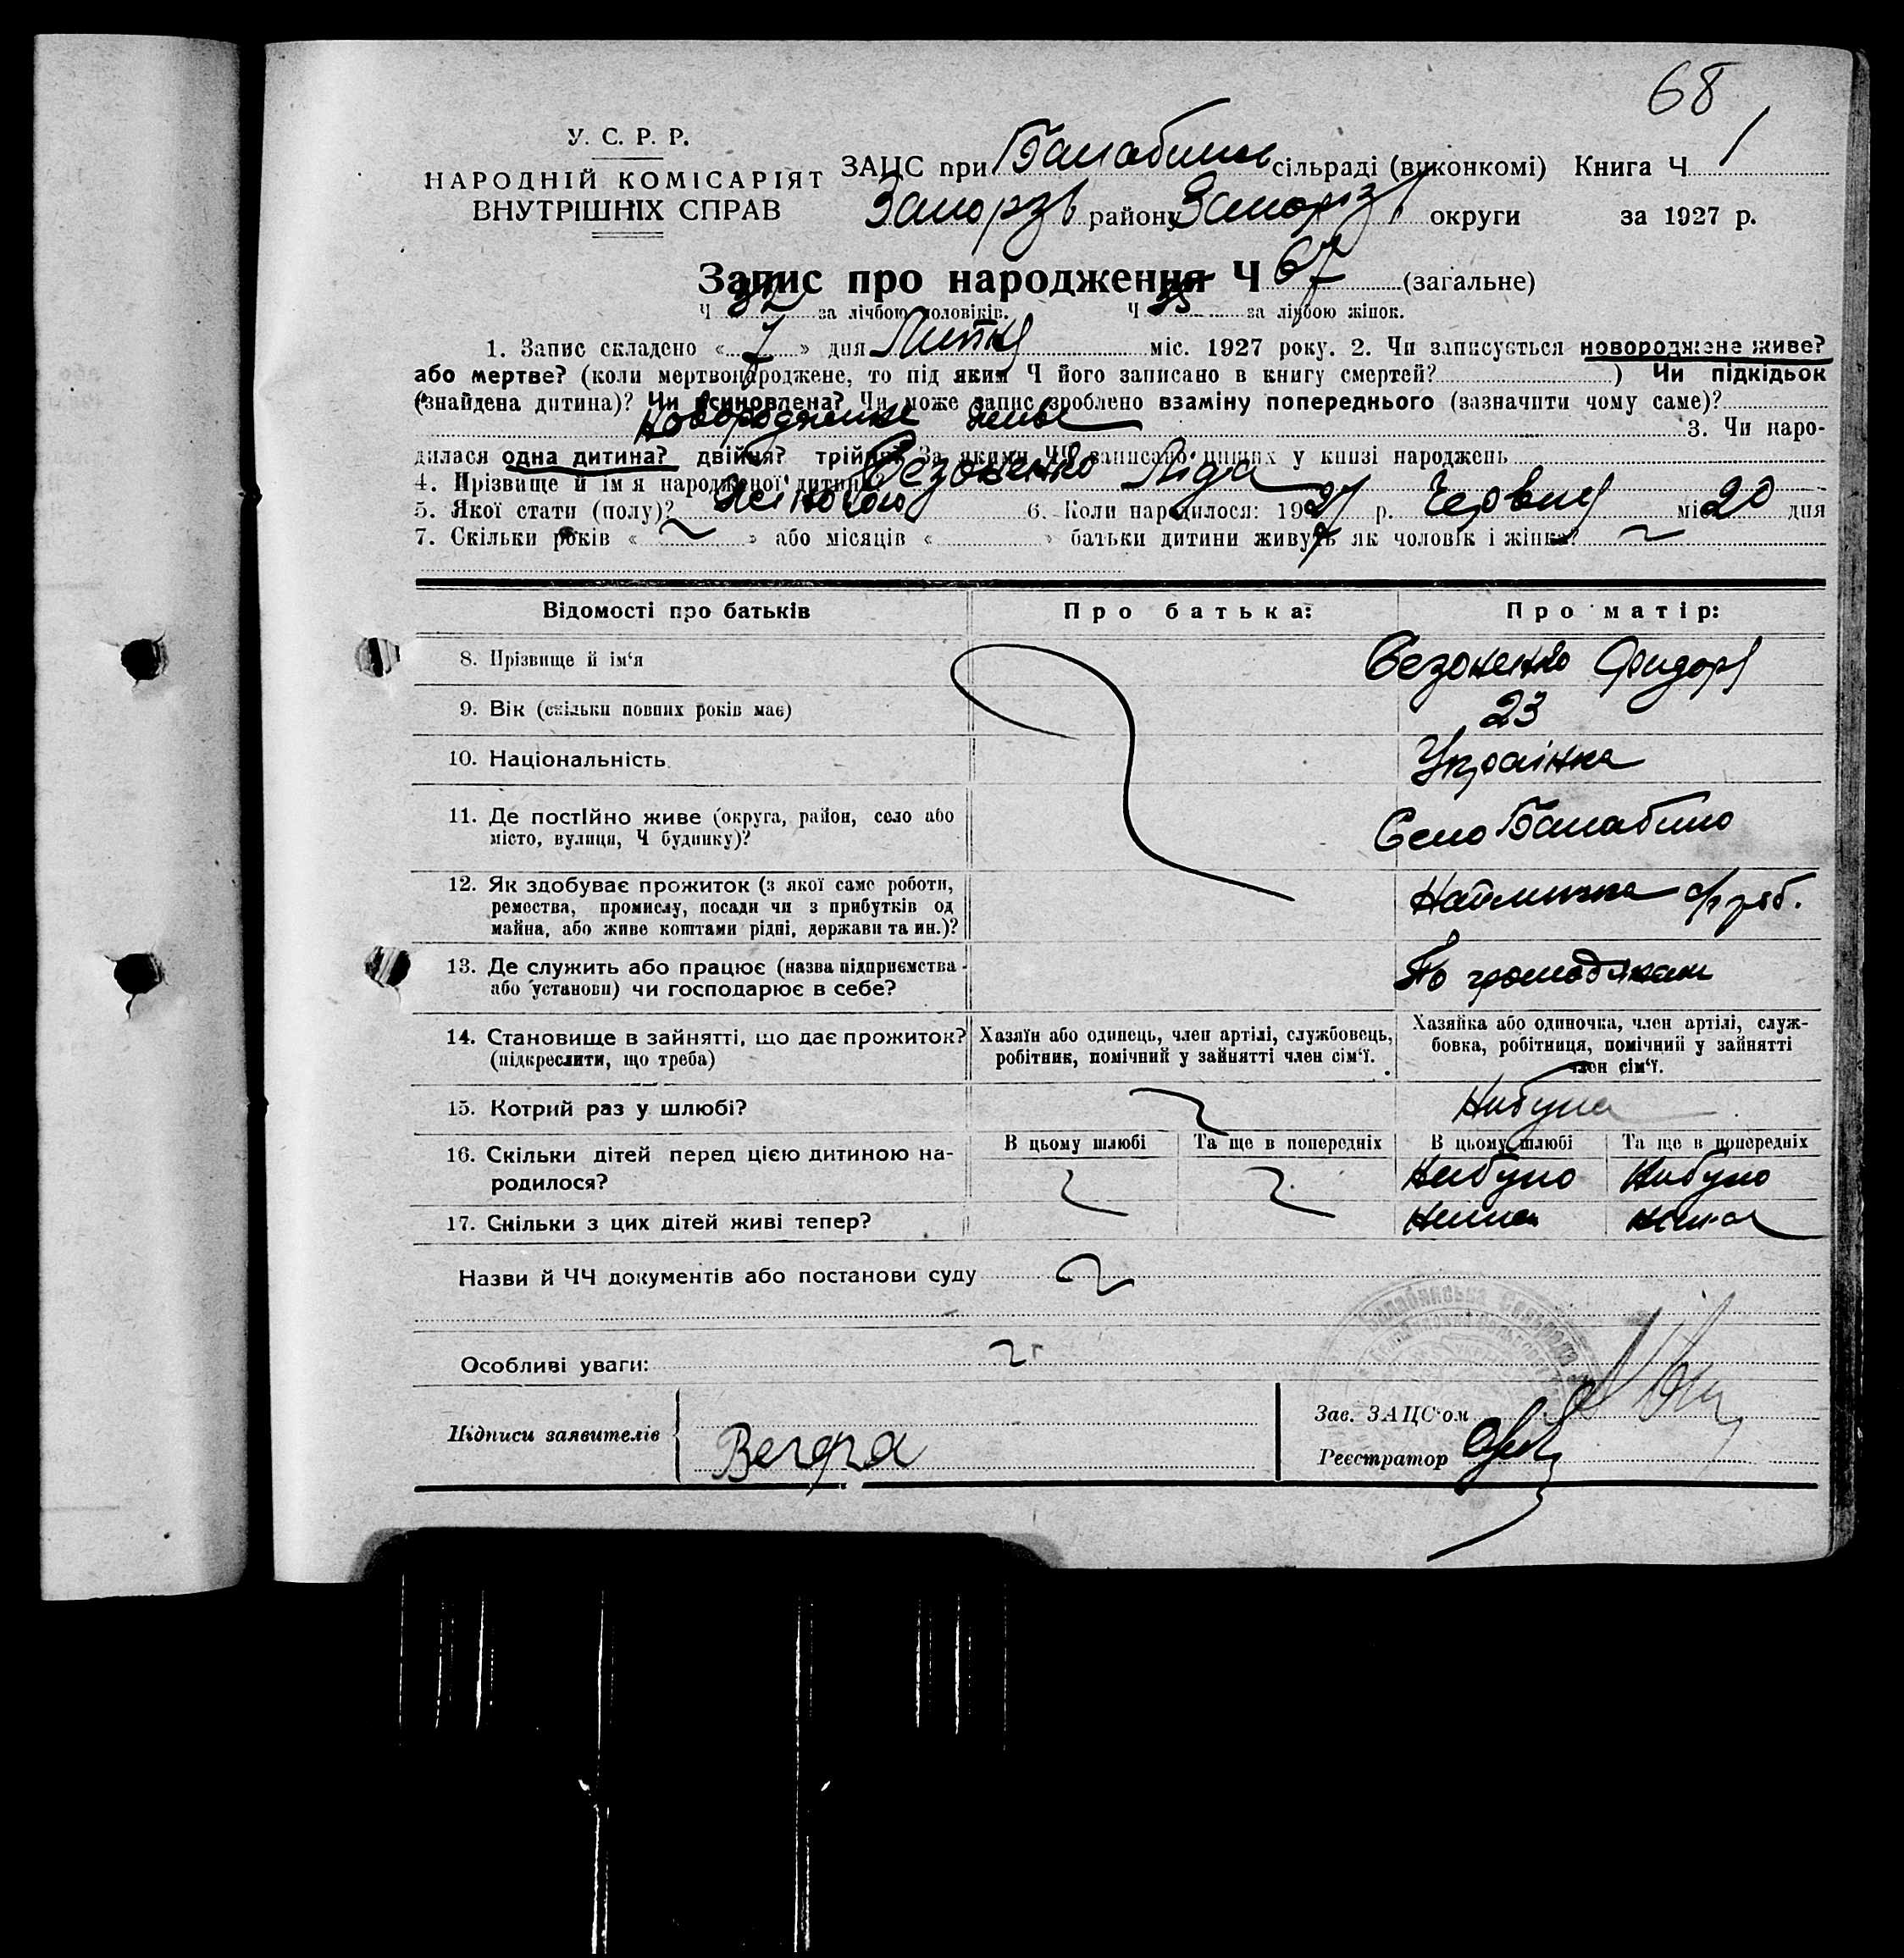 68
У. С. Р. Р.
НАРОДНІЙ КОМІСАРІЯТ
ВНУТРІШНІХ СПРАВ
ЗАЦС при Балабинськ сільраді (виконкомі) Книга Ч 1
Запорізь району Запоріз округи за 1927 р.
Запис про народження Ч 67 (загальне)
Ч 32 за лічбою чоловіків. Ч 35 за лічбою жінок.
1. Запис складено « 7 » дня Липня міс. 1927 року. 2. Чи записується новороджене живе?
або мертве? (коли мертвонароджене, то під яким Ч його записано в книгу смертей? ) Чи підкідьок
(знайдена дитина)? Чи всиновлена? Чи може запис зроблено взаміну попереднього (зазначити чому саме)?
новороджене живе 3. Чи наро-
дилася одна дитина? двійня? трійня? За якими ЧЧ записано инших у книзі народжень
4. Прізвище й ім'я народженої дитини? Сезоненко Ліда
5. Якої стати (полу)? Жіночого 6. Коли народилося: 1927 р. Червня міс. 20 дня
7. Скільки років « » або місяців « » батьки дитини живуть як чоловік і жінка?
Відомості про батьків Про батька: Про матір:
8. Прізвище й ім'я Сезоненко Фидора
9. Вік (скільки повних років має) 23
10. Національність Українка
11. Де постійно живе (округа, район, село або
місто, вулиця, Ч будинку)? Село Балабино
12. Як здобуває прожиток (з якої саме роботи,
ремества, промислу, посади чи з прибутків од
майна, або живе коштами рідні, держави та ин.)? Наймичка
13. Де служить або працює (назва підприємства
або установи) чи господарює в себе? По громадянам
14. Становище в зайнятті, що дає прожиток?
(підкреслити, що треба)
Хазяїн або одинець, член артілі, службовець,
робітник, помічний у зайнятті член сім'ї.
Хазяйка або одиночка, член артілі, служ-
бовка, робітниця, помічний у зайнятті
член сім'ї.
15. Котрий раз у шлюбі? Небула
16. Скільки дітей перед цією дитиною на-
родилося?
В цьому шлюбі Та ще в попередніх В цьому шлюбі Та ще в попередніх
Небуло Небуло
17. Скільки з цих дітей живі тепер? Нима Нима
Назви й ЧЧ документів або постанови суду
Особливі уваги:
Балабинська Сельрада
Підписи заявителів
Зав. ЗАЦС-ом
Реєстратор